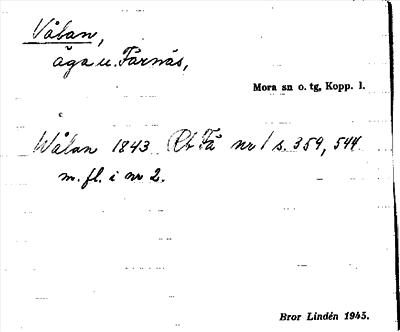 Vålan,
äga u. Färnäs,
Mora sn o. tg, Kopp. l.
Wålan 1843 (Rt Få nr 1 s. 359, 544
m. fl. i nr 2.
Bror Lindén 1945.